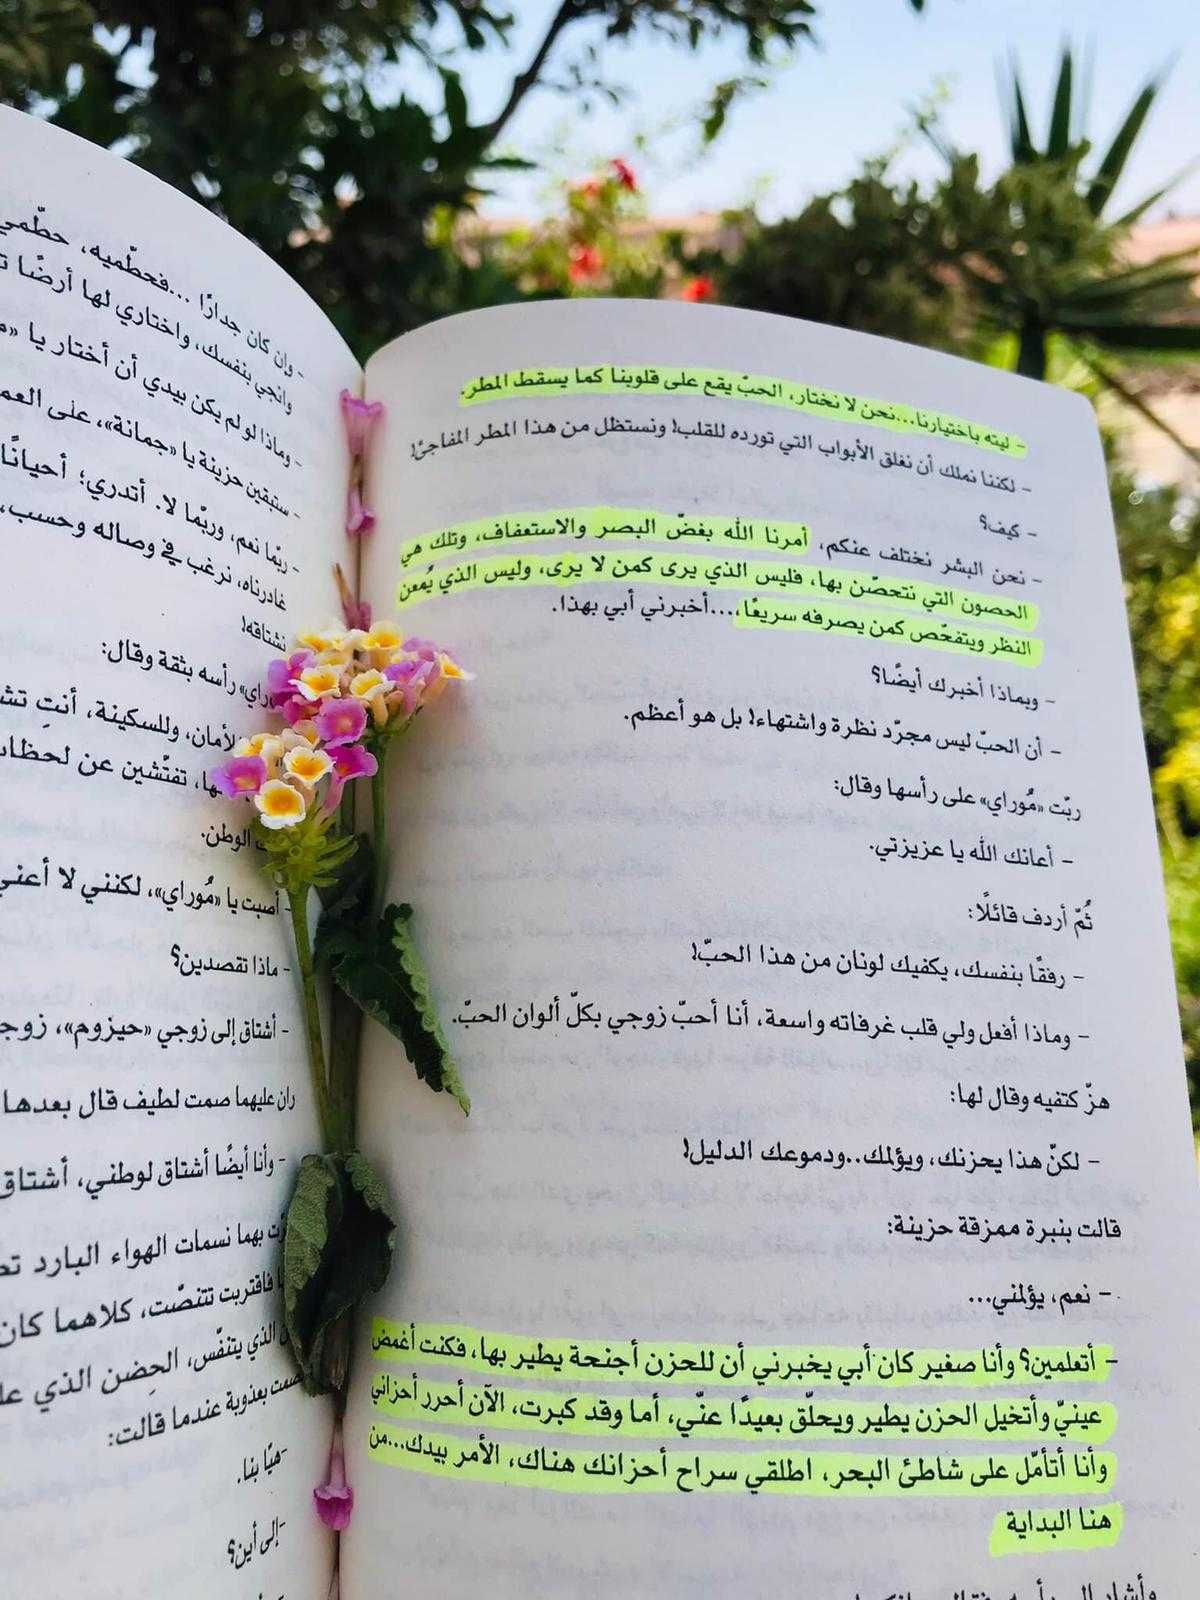 - ليته باختيارنا...نحن لا نختار، الحبّ يقع على قلوبنا كما يسقط المطر.
- لكننا نملك أن نغلق الأبواب التي تورده للقلب! ونستظل من هذا المطر المفاجئ!
- كيف؟
- نحن البشر نختلف عنكم، أمرنا الله بغضّ البصر والاستعفاف، وتلك هي
الحصون التي نتحصّن بها، فليس الذي يرى كمن لا يرى، وليس الذي يُمعن
النظر ويتفحّص كمن يصرفه سريعًا....أخبرني أبي بهذا.
- وبماذا أخبرك أيضًا؟
- أن الحبّ ليس مجرّد نظرة واشتهاء! بل هو أعظم.
ربّت «مُوراي» على رأسها وقال:
- أعانك الله يا عزيزتي.
ثُمّ أردف قائلًا:
- رفقًا بنفسك، يكفيك لونان من هذا الحبّ!
- وماذا أفعل ولي قلب غرفاته واسعة، أنا أحبّ زوجي بكلّ ألوان الحبّ.
هزّ كتفيه وقال لها:
- لكنّ هذا يحزنك، ويؤلمك..ودموعك الدليل!
قالت بنبرة ممزقة حزينة:
- نعم، يؤلمني...
- أتعلمين؟ وأنا صغير كان أبي يخبرني أن للحزن أجنحة يطير بها، فكنت أغمض
عينيّ وأتخيل الحزن يطير ويحلّق بعيدًا عنّي، أما وقد كبرت، الآن أحرر أحزاني
وأنا أتأمّل على شاطئ البحر، اطلقي سراح أحزانك هناك، الأمر بيدك...من
هنا البداية
- وإن كان جدارًا ...فحطّميه، حطّمي
وانجي بنفسك، واختاري لها أرضًا
- وماذا لو لم يكن بيدي أن أختار يا
- ستبقين حزينة يا «جمانة»، على
- ربّما نعم، وربّما لا. أتدري؛ أحيانًا
غادرناه، نرغب في وصاله وحسب،
نشتاقه!
رأسه بثقة وقال:
وللسكينة، أنتِ
تفتّشين عن
الوطن.
- أصبت يا «مُوراي»، لكنني لا أعني
- ماذا تقصدين؟
- أشتاق إلى زوجي «حيزوم»،
ران عليهما صمت لطيف قال بعدها
- وأنا أيضًا أشتاق لوطني، أشتاق
بهما نسمات الهواء البارد
فاقتربت تتنصّت، كلاهما كان
الذي يتنفّس، الحِضن الذي
بعذوبة عندما قالت:
-هيّا بنا.
-إلى أين؟